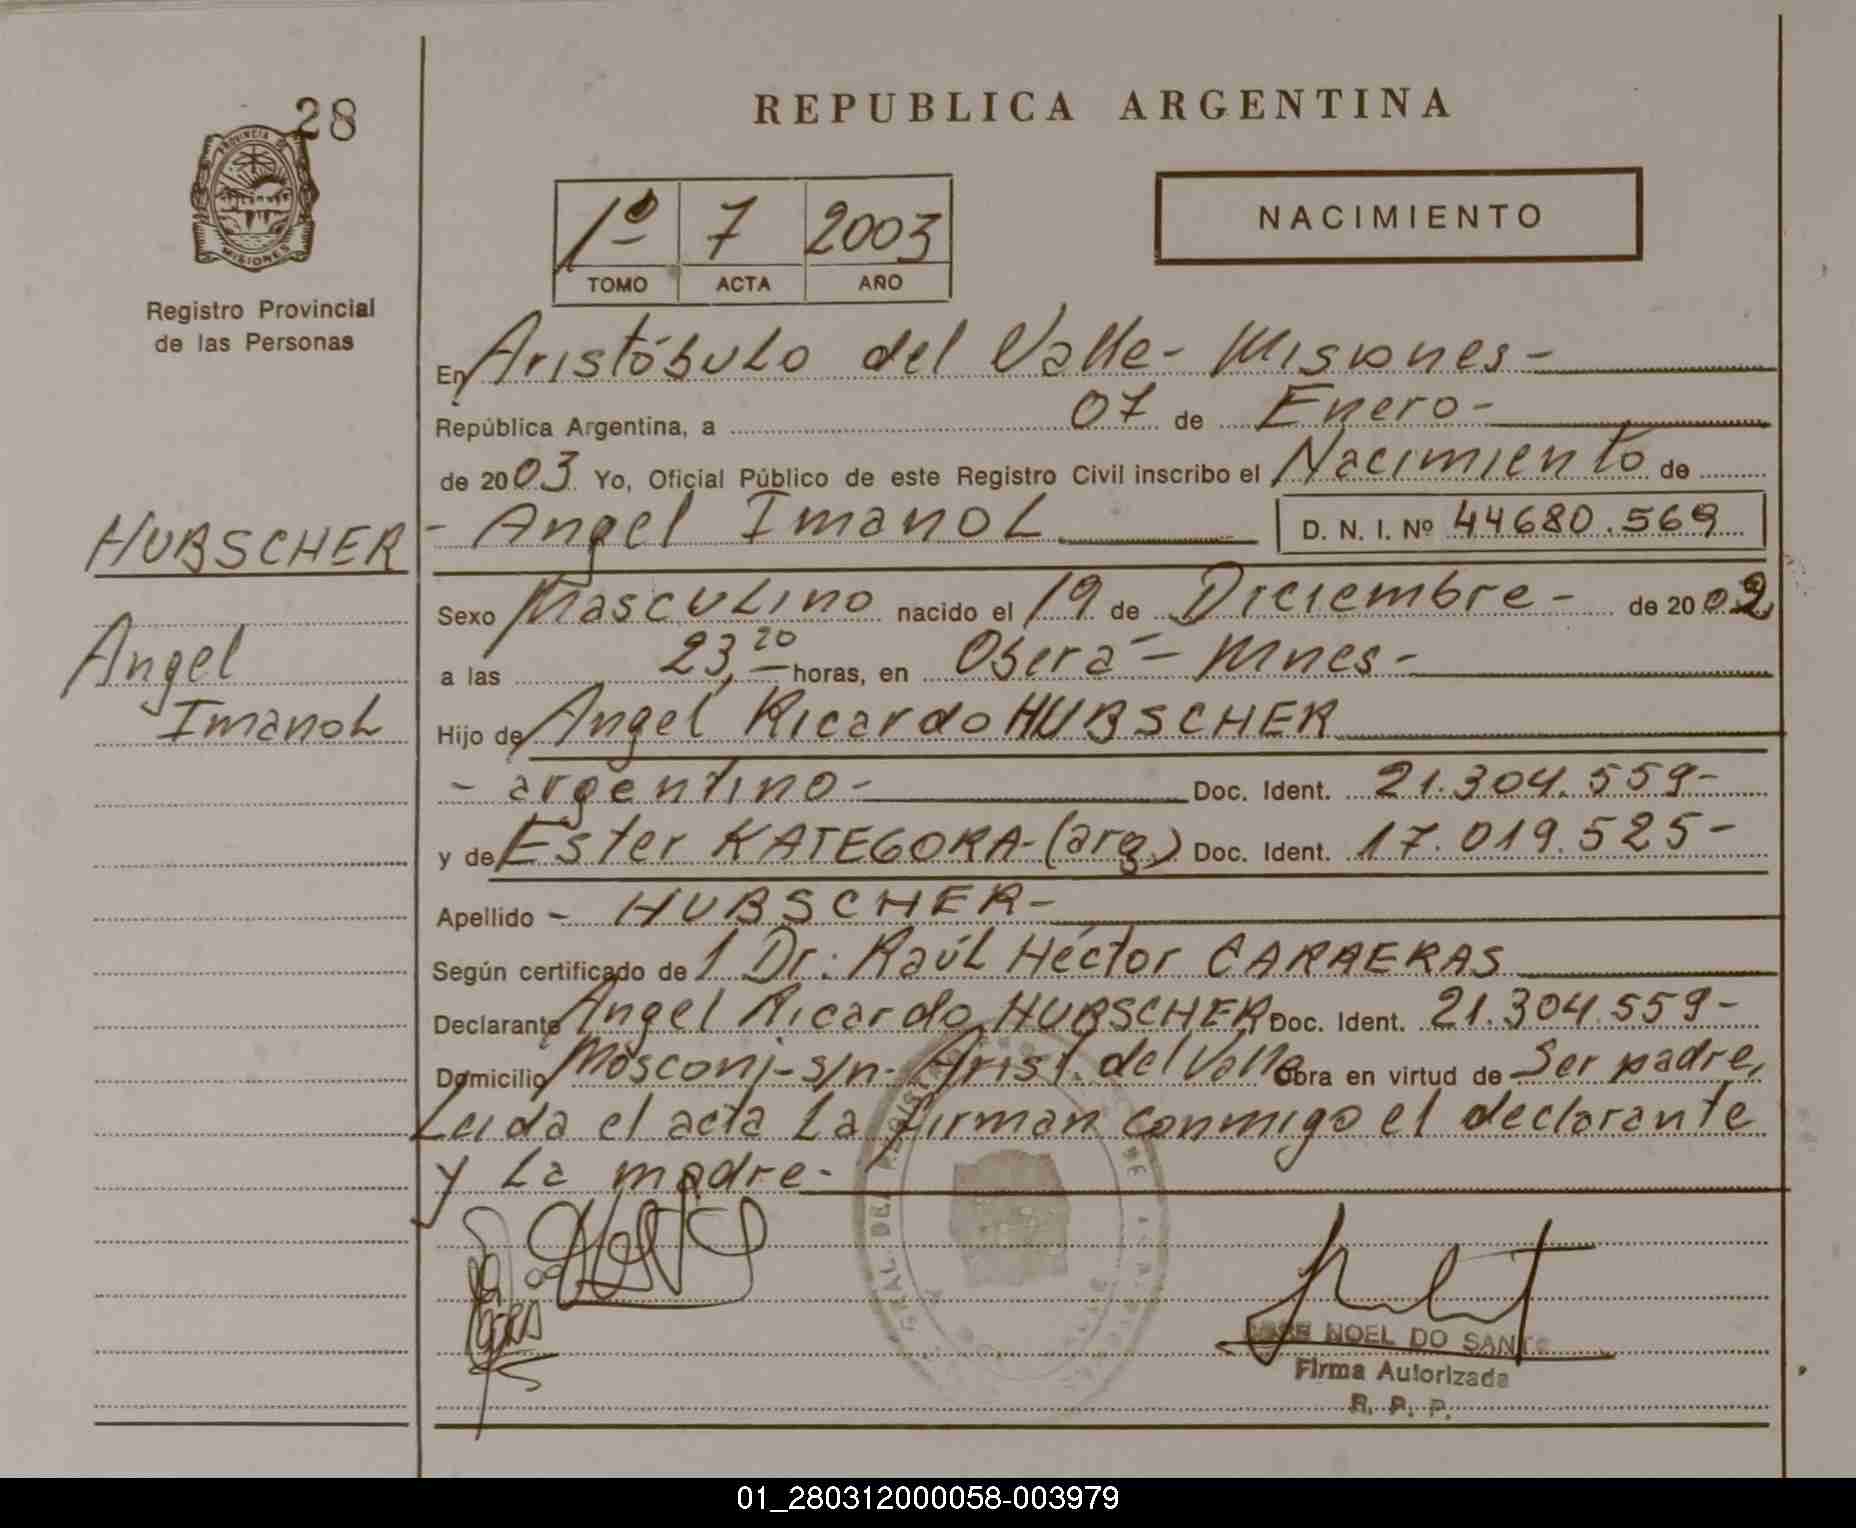 28
PROVINCIA DE
MISIONES
Registro Provincial
de las Personas
HUBSCHER
Angel
Imanol
REPUBLICA ARGENTINA
1º 7 2003
TOMO ACTA AÑO
NACIMIENTO
En Aristóbulo del Valle - Misiones -
República Argentina, a 07 de Enero -
de 2003 Yo, Oficial Público de este Registro Civil inscribo el Nacimiento de
- Angel Imanol D. N. I. Nº 44680.569
Sexo Masculino nacido el 19 de Diciembre - de 2002
a las 23,20 horas, en Oberá - Mnes -
Hijo de Angel Ricardo HUBSCHER
- argentino - Doc. Ident. 21.304.559-
y de Ester KATEGORA - (arg.) Doc. Ident. 17.019.525-
Apellido - HUBSCHER -
Según certificado de 1 Dr: Raúl Héctor CARRERAS
Declarante Angel Ricardo HUBSCHER. Doc. Ident. 21.304.559-
Domicilio Mosconi - s/n - Arist. del Valle Obra en virtud de Ser padre,
Leida el acta la firman conmigo el declarante
y la madre -
NOEL DO SANT
Firma Autorizada
R. P. P.
01_280312000058-003979